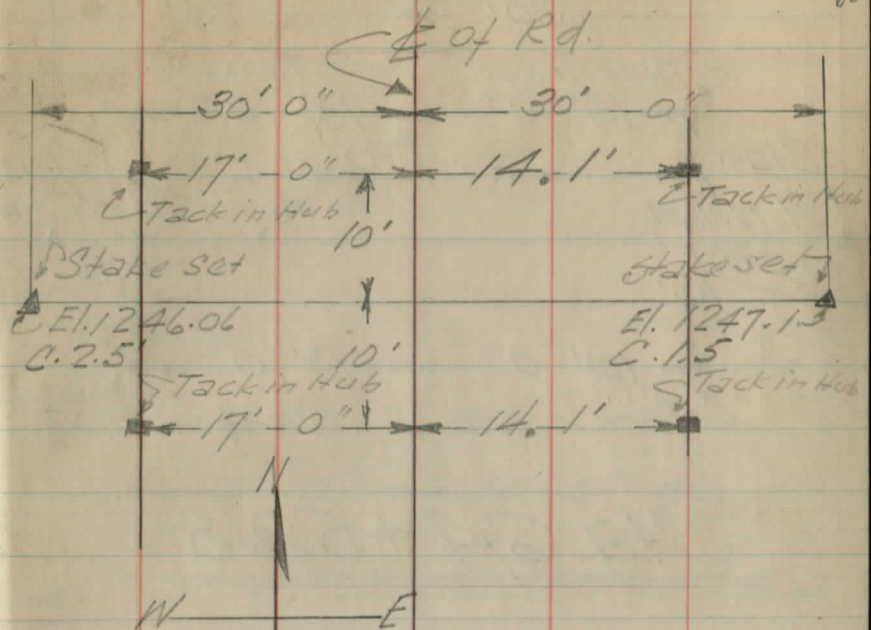 ℄ of Rd.
30' 0" 30' 0"
17' 0" 14.1'
Tack in Hub Tack in Hub
10'
Stake set Stake set
El. 1246.06 El. 1247.13
C. 2.5' C. 1.5
10'
Tack in Hub Tack in Hub
17' 0" 14.1'
N
W E